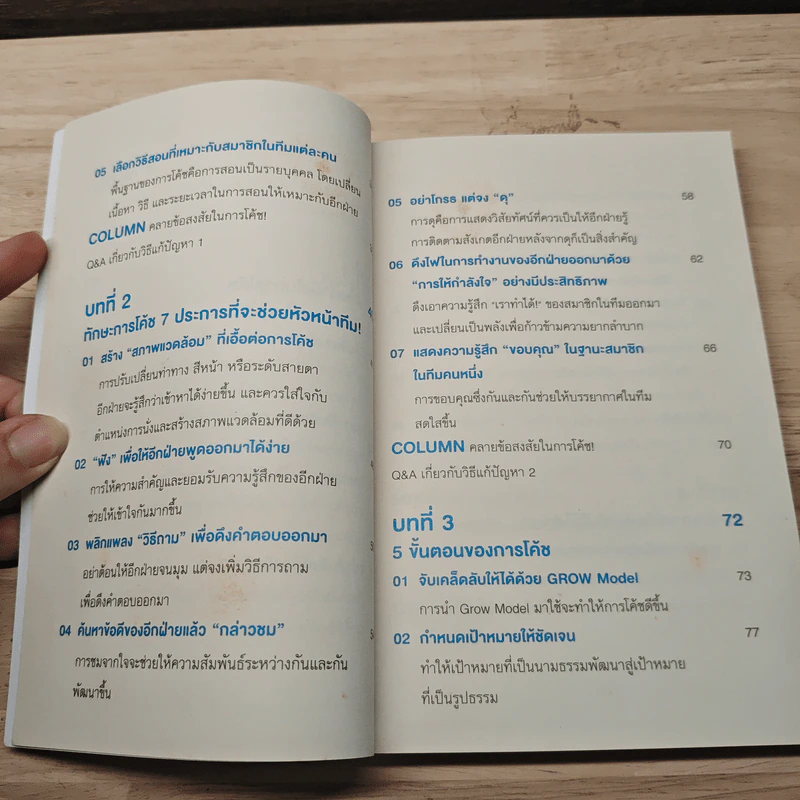 05 เลือกวิธีสอนที่เหมาะกับสมาชิกในทีมแต่ละคน
พื้นฐานของการโค้ชคือการสอนเป็นรายบุคคล โดยเปลี่ยน
เนื้อหา วิธี และระยะเวลาในการสอนให้เหมาะกับอีกฝ่าย
COLUMN คลายข้อสงสัยในการโค้ช!
Q&A เกี่ยวกับวิธีแก้ปัญหา 1
บทที่ 2
ทักษะการโค้ช 7 ประการที่จะช่วยหัวหน้าทีม!
01 สร้าง “สภาพแวดล้อม” ที่เอื้อต่อการโค้ช
การปรับเปลี่ยนท่าทาง สีหน้า หรือระดับสายตา
อีกฝ่ายจะรู้สึกว่าเข้าหาได้ง่ายขึ้น และควรใส่ใจกับ
ตำแหน่งการนั่งและสร้างสภาพแวดล้อมที่ดีด้วย
02 “ฟัง” เพื่อให้อีกฝ่ายพูดออกมาได้ง่าย
การให้ความสำคัญและยอมรับความรู้สึกของอีกฝ่าย
ช่วยให้เข้าใจกันมากขึ้น
03 พลิกแพลง “วิธีถาม” เพื่อดึงคำตอบออกมา
อย่าต้อนให้อีกฝ่ายจนมุม แต่จงเพิ่มวิธีการถาม
เพื่อดึงคำตอบออกมา
04 ค้นหาข้อดีของอีกฝ่ายแล้ว “กล่าวชม”
การชมจากใจจะช่วยให้ความสัมพันธ์ระหว่างกันและกัน
พัฒนาขึ้น
05 อย่าโกรธ แต่จง “ดุ” 58
การดุคือการแสดงวิสัยทัศน์ที่ควรเป็นให้อีกฝ่ายรู้
การติดตามสังเกตอีกฝ่ายหลังจากดุก็เป็นสิ่งสำคัญ
06 ดึงไฟในการทำงานของอีกฝ่ายออกมาด้วย 62
“การให้กำลังใจ” อย่างมีประสิทธิภาพ
ดึงเอาความรู้สึก ‘เราทำได้!’ ของสมาชิกในทีมออกมา
และเปลี่ยนเป็นพลังเพื่อก้าวข้ามความยากลำบาก
07 แสดงความรู้สึก “ขอบคุณ” ในฐานะสมาชิก 66
ในทีมคนหนึ่ง
การขอบคุณซึ่งกันและกันช่วยให้บรรยากาศในทีม
สดใสขึ้น
COLUMN คลายข้อสงสัยในการโค้ช! 70
Q&A เกี่ยวกับวิธีแก้ปัญหา 2
บทที่ 3 72
5 ขั้นตอนของการโค้ช
01 จับเคล็ดลับให้ได้ด้วย GROW Model 73
การนำ Grow Model มาใช้จะทำให้การโค้ชดีขึ้น
02 กำหนดเป้าหมายให้ชัดเจน 77
ทำให้เป้าหมายที่เป็นนามธรรมพัฒนาสู่เป้าหมาย
ที่เป็นรูปธรรม